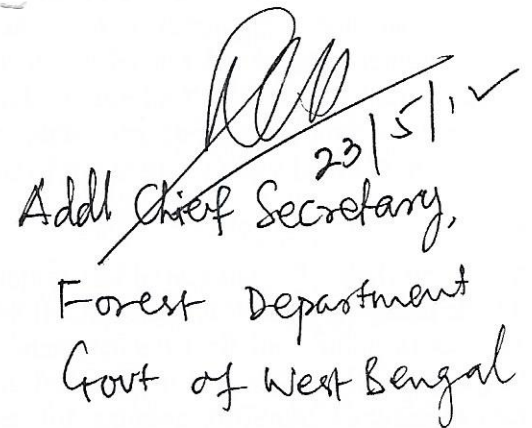 23/5/12
Addl Chief Secretary,
Forest Department
Govt of West Bengal